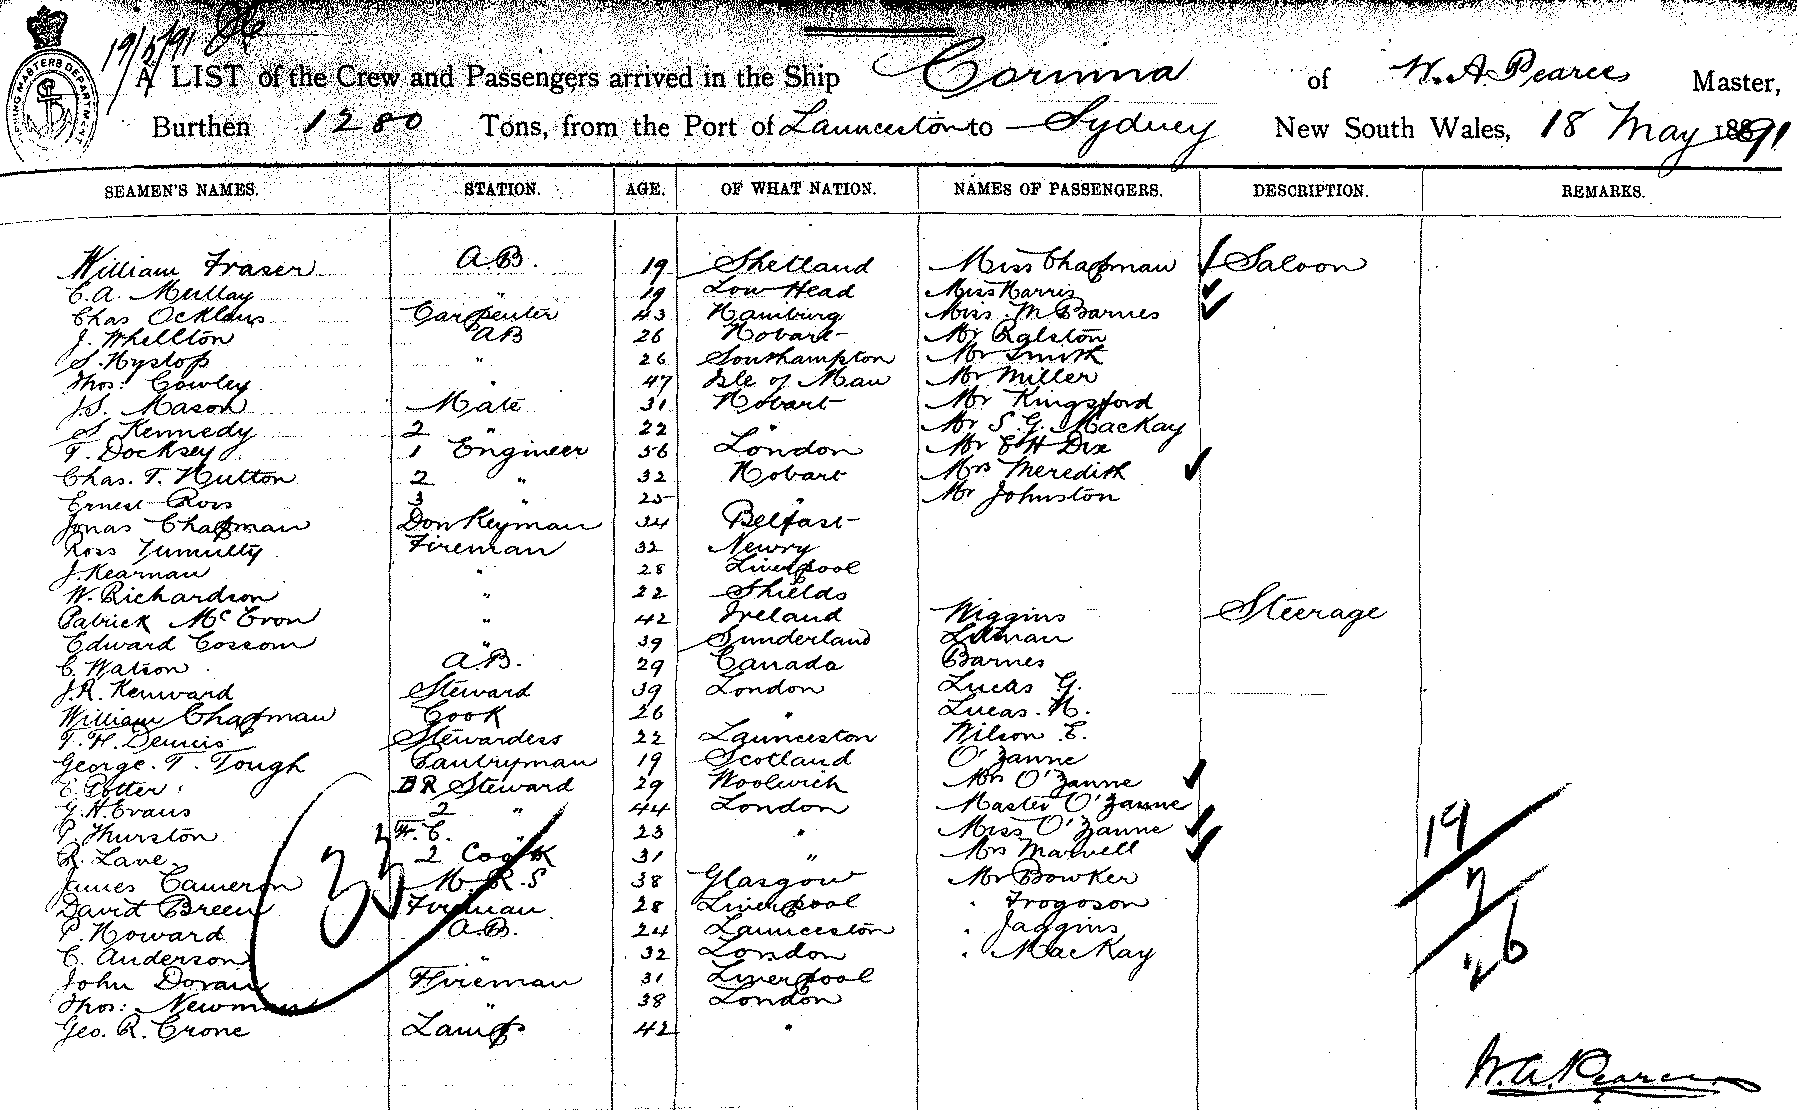 19/5/91
A LIST of the Crew and Passengers arrived in the Ship Corinna of W. A. Pearce Master,
Burthen 1280 Tons, from the Port of Launceston to Sydney New South Wales, 18 May 1891
SEAMEN'S NAMES. STATION. AGE. OF WHAT NATION. NAMES OF PASSENGERS. DESCRIPTION. REMARKS.
William Fraser A.B. 19 Shetland Miss Chapman Saloon
C. A. Mullay " 19 Low Head Miss Harris
Chas Ocklaus Carpenter 43 Hamburg Miss M Barnes
J. Whellton AB 26 Hobart Mr Ralston
S. Hyslop " 26 Southampton Mr Smith
Thos: Cowley " 47 Isle of Man Mr Miller
J. S. Mason Mate 31 Hobart Mr Kingsford
S Kennedy 2 " 22 " Mr S. G. MacKay
T. Docksey 1 Engineer 56 London Mr E H Dix
Chas. T. Hutton 2 " 32 Hobart Mrs Meredith
Ernest Ross 3 " 25 " Mr Johnston
Jonas Chapman Donkeyman 34 Belfast
Ross Fireman 32 Newry
J. Kearnan " 28 Liverpool
W. Richardson " 22 Shields
Patrick Mc Evon " 42 Ireland Wiggins Steerage
Edward Cossom " 39 Sunderland Litman
C. Watson A.B. 29 Canada Barnes
J. R. Kenward Steward 39 London Lucas G.
William Chapman Cook 26 " Lucas. H.
T. H. Dennis Stewardess 22 Launceston Wilson E.
George. T. Tough Pantryman 19 Scotland O'Zanne
C. Potter BR Steward 29 Woolwich Mrs O'Zanne
G. H. Evans 2 " 44 London Master O'Zanne
P. Thurston F. C. " 23 " Miss O'Zanne
R. Lane 2 Cook 31 " Mrs Marvell
James Cameron M. R. S 38 Glasgow Mr Bowker
David Breen Fireman 28 Liverpool " Frogoson
P. Howard A.B. 24 Launceston " Jaggins
C. Anderson " 32 London " MacKay
John Doran Fireman 31 Liverpool
Thos: Newman " 38 London
Geo. R. Crone Lamps 42 "
33
19
7
26
W. A. Pearce